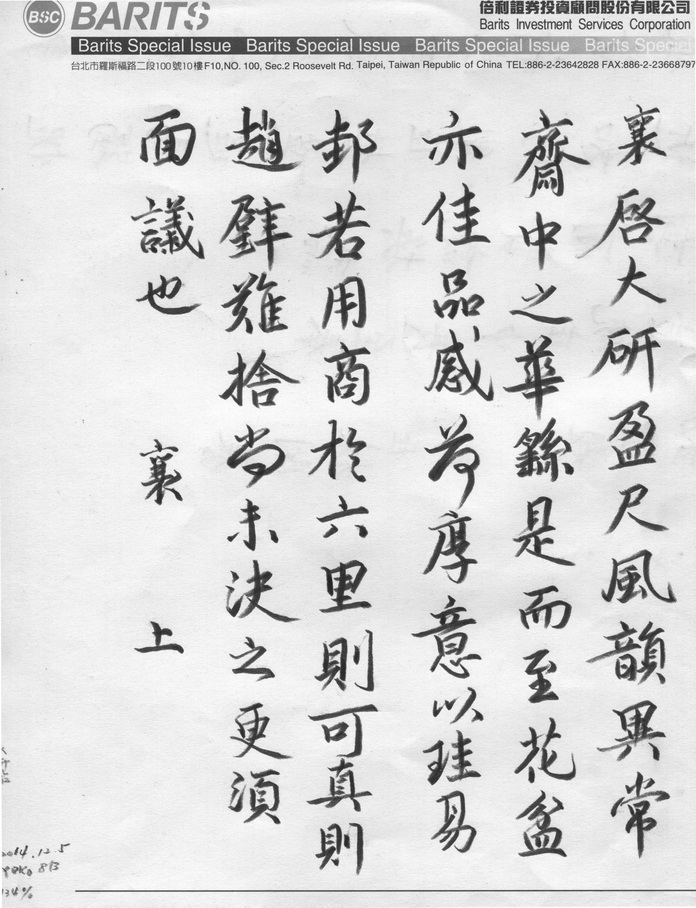 BSC BARITS
倍利證券投資顧問股份有限公司
Barits Investment Services Corporation
Barits Special Issue Barits Special Issue Barits Special Issue Barits Special Issue
台北市羅斯福路二段100號10樓F10,NO. 100, Sec.2 Roosevelt Rd. Taipei, Taiwan Republic of China TEL:886-2-23642828 FAX:886-2-23668797
襄啓大研盈尺風韻異常
齋中之華繇是而至花盆
亦佳品感荷厚意以珪易
邽若用商於六里則可真則
趙璧難捨尚未決之更須
面議也 襄 上
2014.12.5
134%